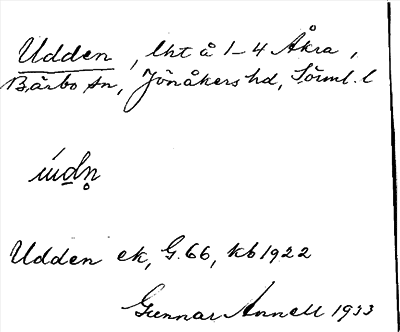 Udden, lht å 1–4 Åkra,
Bärbo sn, Jönåkers hd, Sörml. l
Udden ek, G. 66, kb 1922
Gunnar Annell 1933